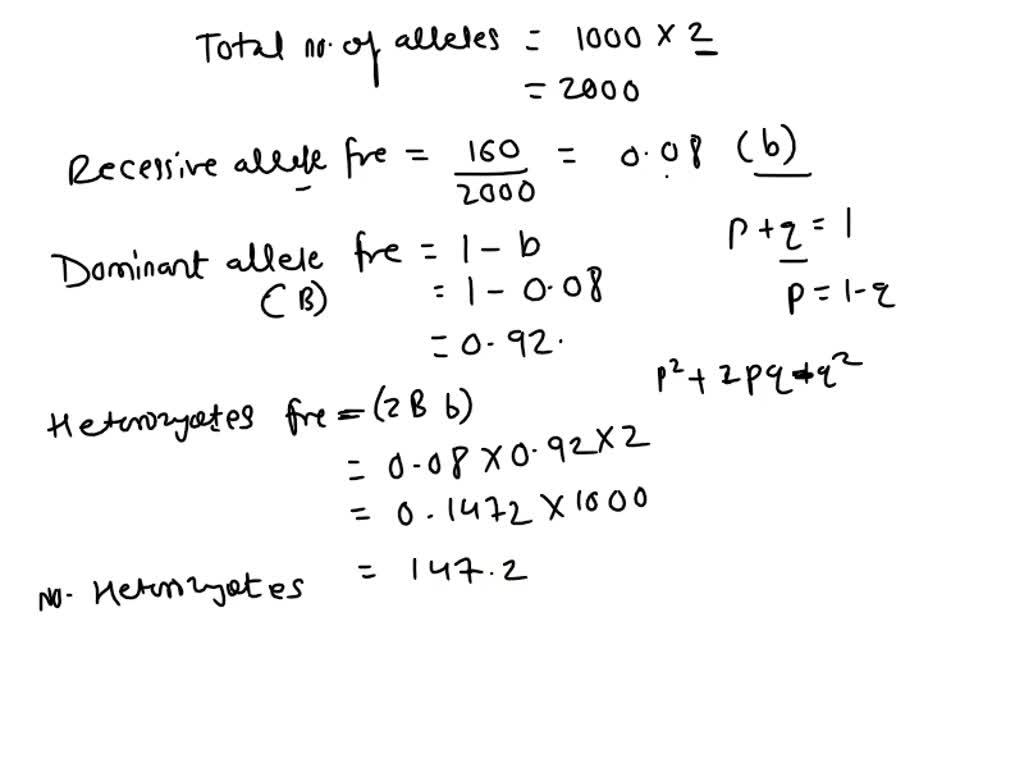 Total no. of alleles = 1000 × 2
= 2000
Recessive allele fre = 160/2000 = 0.08 (b)
p + q = 1
Dominant allele fre = 1 - b
(B) = 1 - 0.08
p = 1 - q
= 0.92.
p² + 2pq + q²
Heterozygotes fre = (2 B b)
= 0.08 × 0.92 × 2
= 0.1472 × 1000
= 147.2
No. Heterozygotes